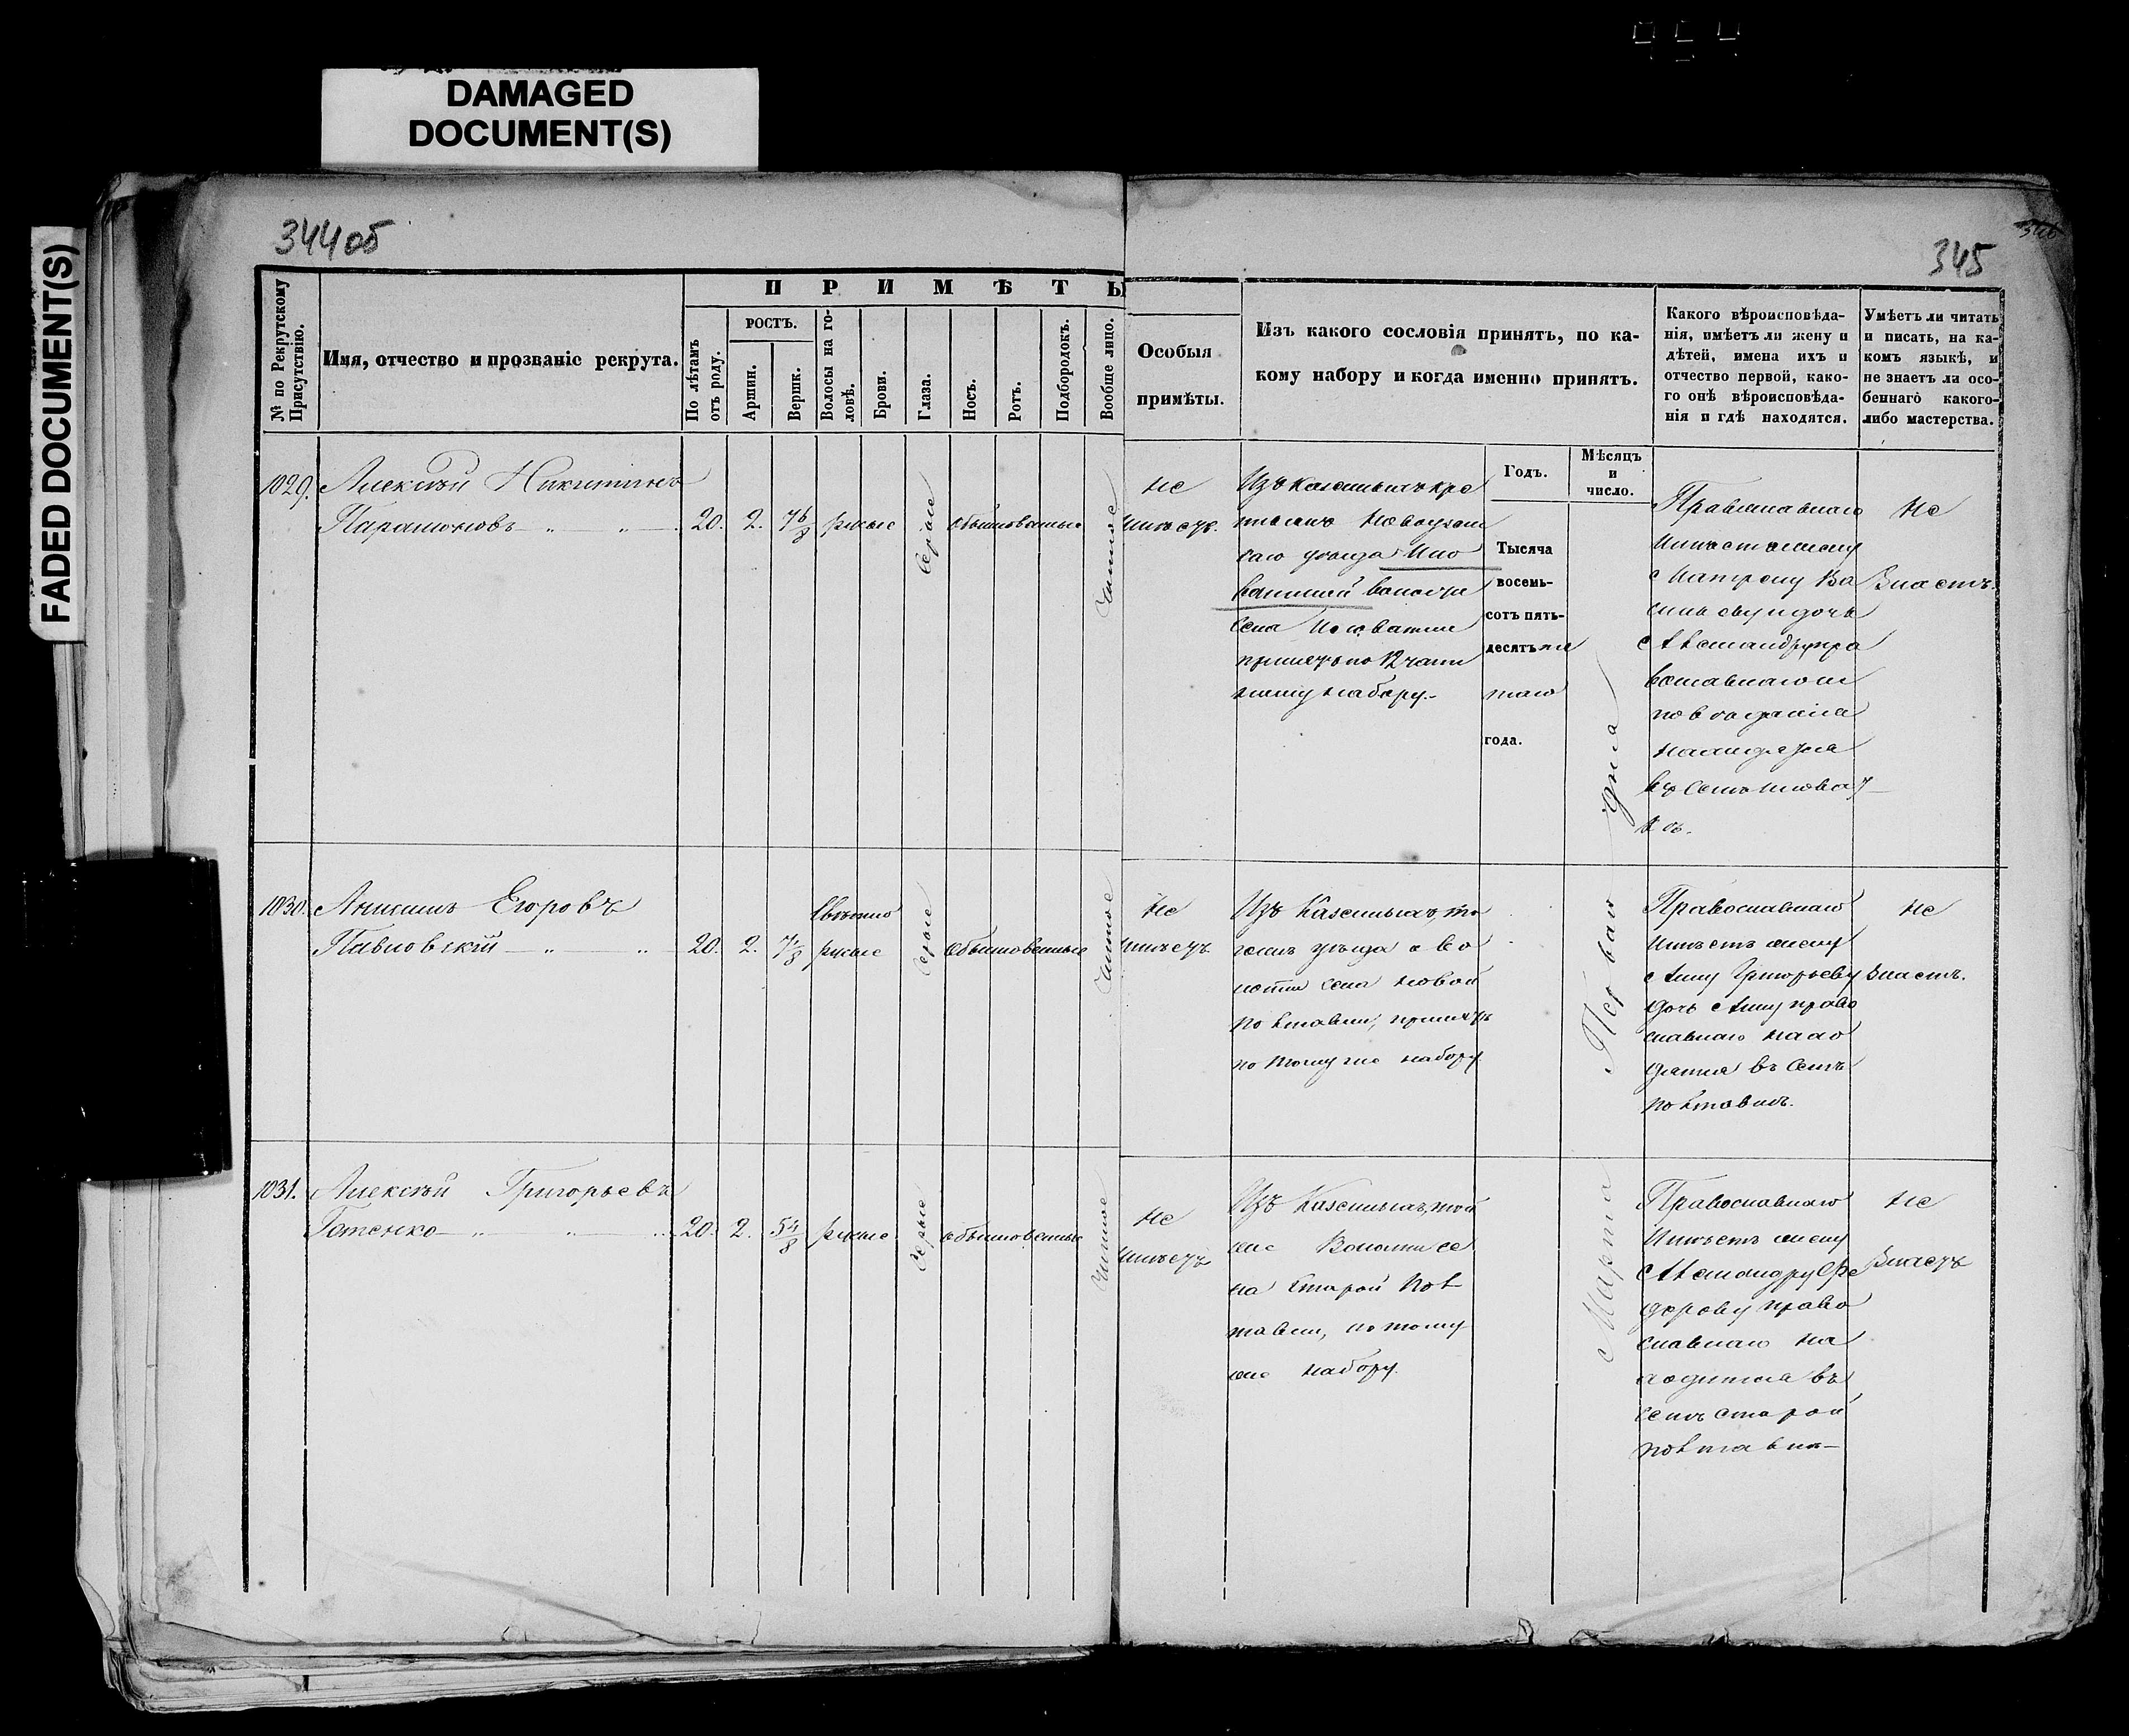 DAMAGED
DOCUMENT(S)
FADED DOCUMENT(S)
344об
345
№ по Рекрутскому
Присутствію.
Имя, отчество и прозваніе рекрута.
П Р И М Ѣ Т Ы
По лѣтамъ
отъ роду.
РОСТЪ.
Аршин.
Вершк.
Волосы на го-
ловѣ.
Брови.
Глаза.
Носъ.
Ротъ.
Подбородокъ.
Вообще лицо.
Особыя
примѣты.
Изъ какого сословія принятъ, по ка-
кому набору и когда именно принятъ.
Какого вѣроисповѣда-
нія, имѣетъ ли жену и
дѣтей, имена ихъ и
отчество первой, како-
го онѣ вѣроисповѣда-
нія и гдѣ находятся.
Умѣетъ ли читать
и писать, на ка-
комъ языкѣ, и
не знаетъ ли осо-
беннаго какого-
либо мастерства.
Годъ.
Мѣсяцъ
и
число.
1029. Алексѣй Никитинъ
Парамоновъ 20. 2. 7 6/8 русые Серые обыкновенные Чистое
Не
имѣетъ.
Изъ Казенныхъ кре
стьянъ Новоузен
скаго уѣзда
волости
Села
принятъ по 12 части
ному набору.
Тысяча
восемь-
сотъ пять-
десятъ пя
таго
года.
Перваго дня
Марта
Православнаго
имѣетъ жену
Матрону Ва
сильеву и дочь
Александру пра
вославнаго
Не
Знаетъ.
1030. Егоровъ
Павловскій 20. 2. 7 1/8 Свѣтло
русые Серые обыкновенные Чистое
Не
имѣетъ
Изъ Казенныхъ, то
гожъ уѣзда и во
лости Села Новой
Полтавки, принятъ
по тому же набору
Православнаго
Имѣетъ жену
Анну Григорьеву
дочь Анну право
славнаго нахо
дятся въ Селѣ
Полтавкѣ.
Не
Знаетъ.
1031. Алексѣй Григорьевъ
20. 2. 5 4/8 русые Серые обыкновенные Чистое
Не
имѣетъ
Изъ Казенныхъ, той
же Волости Се
ла Старой Пол
тавки, по тому
же набору.
Православнаго
Имѣетъ жену
Александру Фе
дорову право
славнаго на
ходится въ
селѣ старой
полтавкѣ
Не
Знаетъ